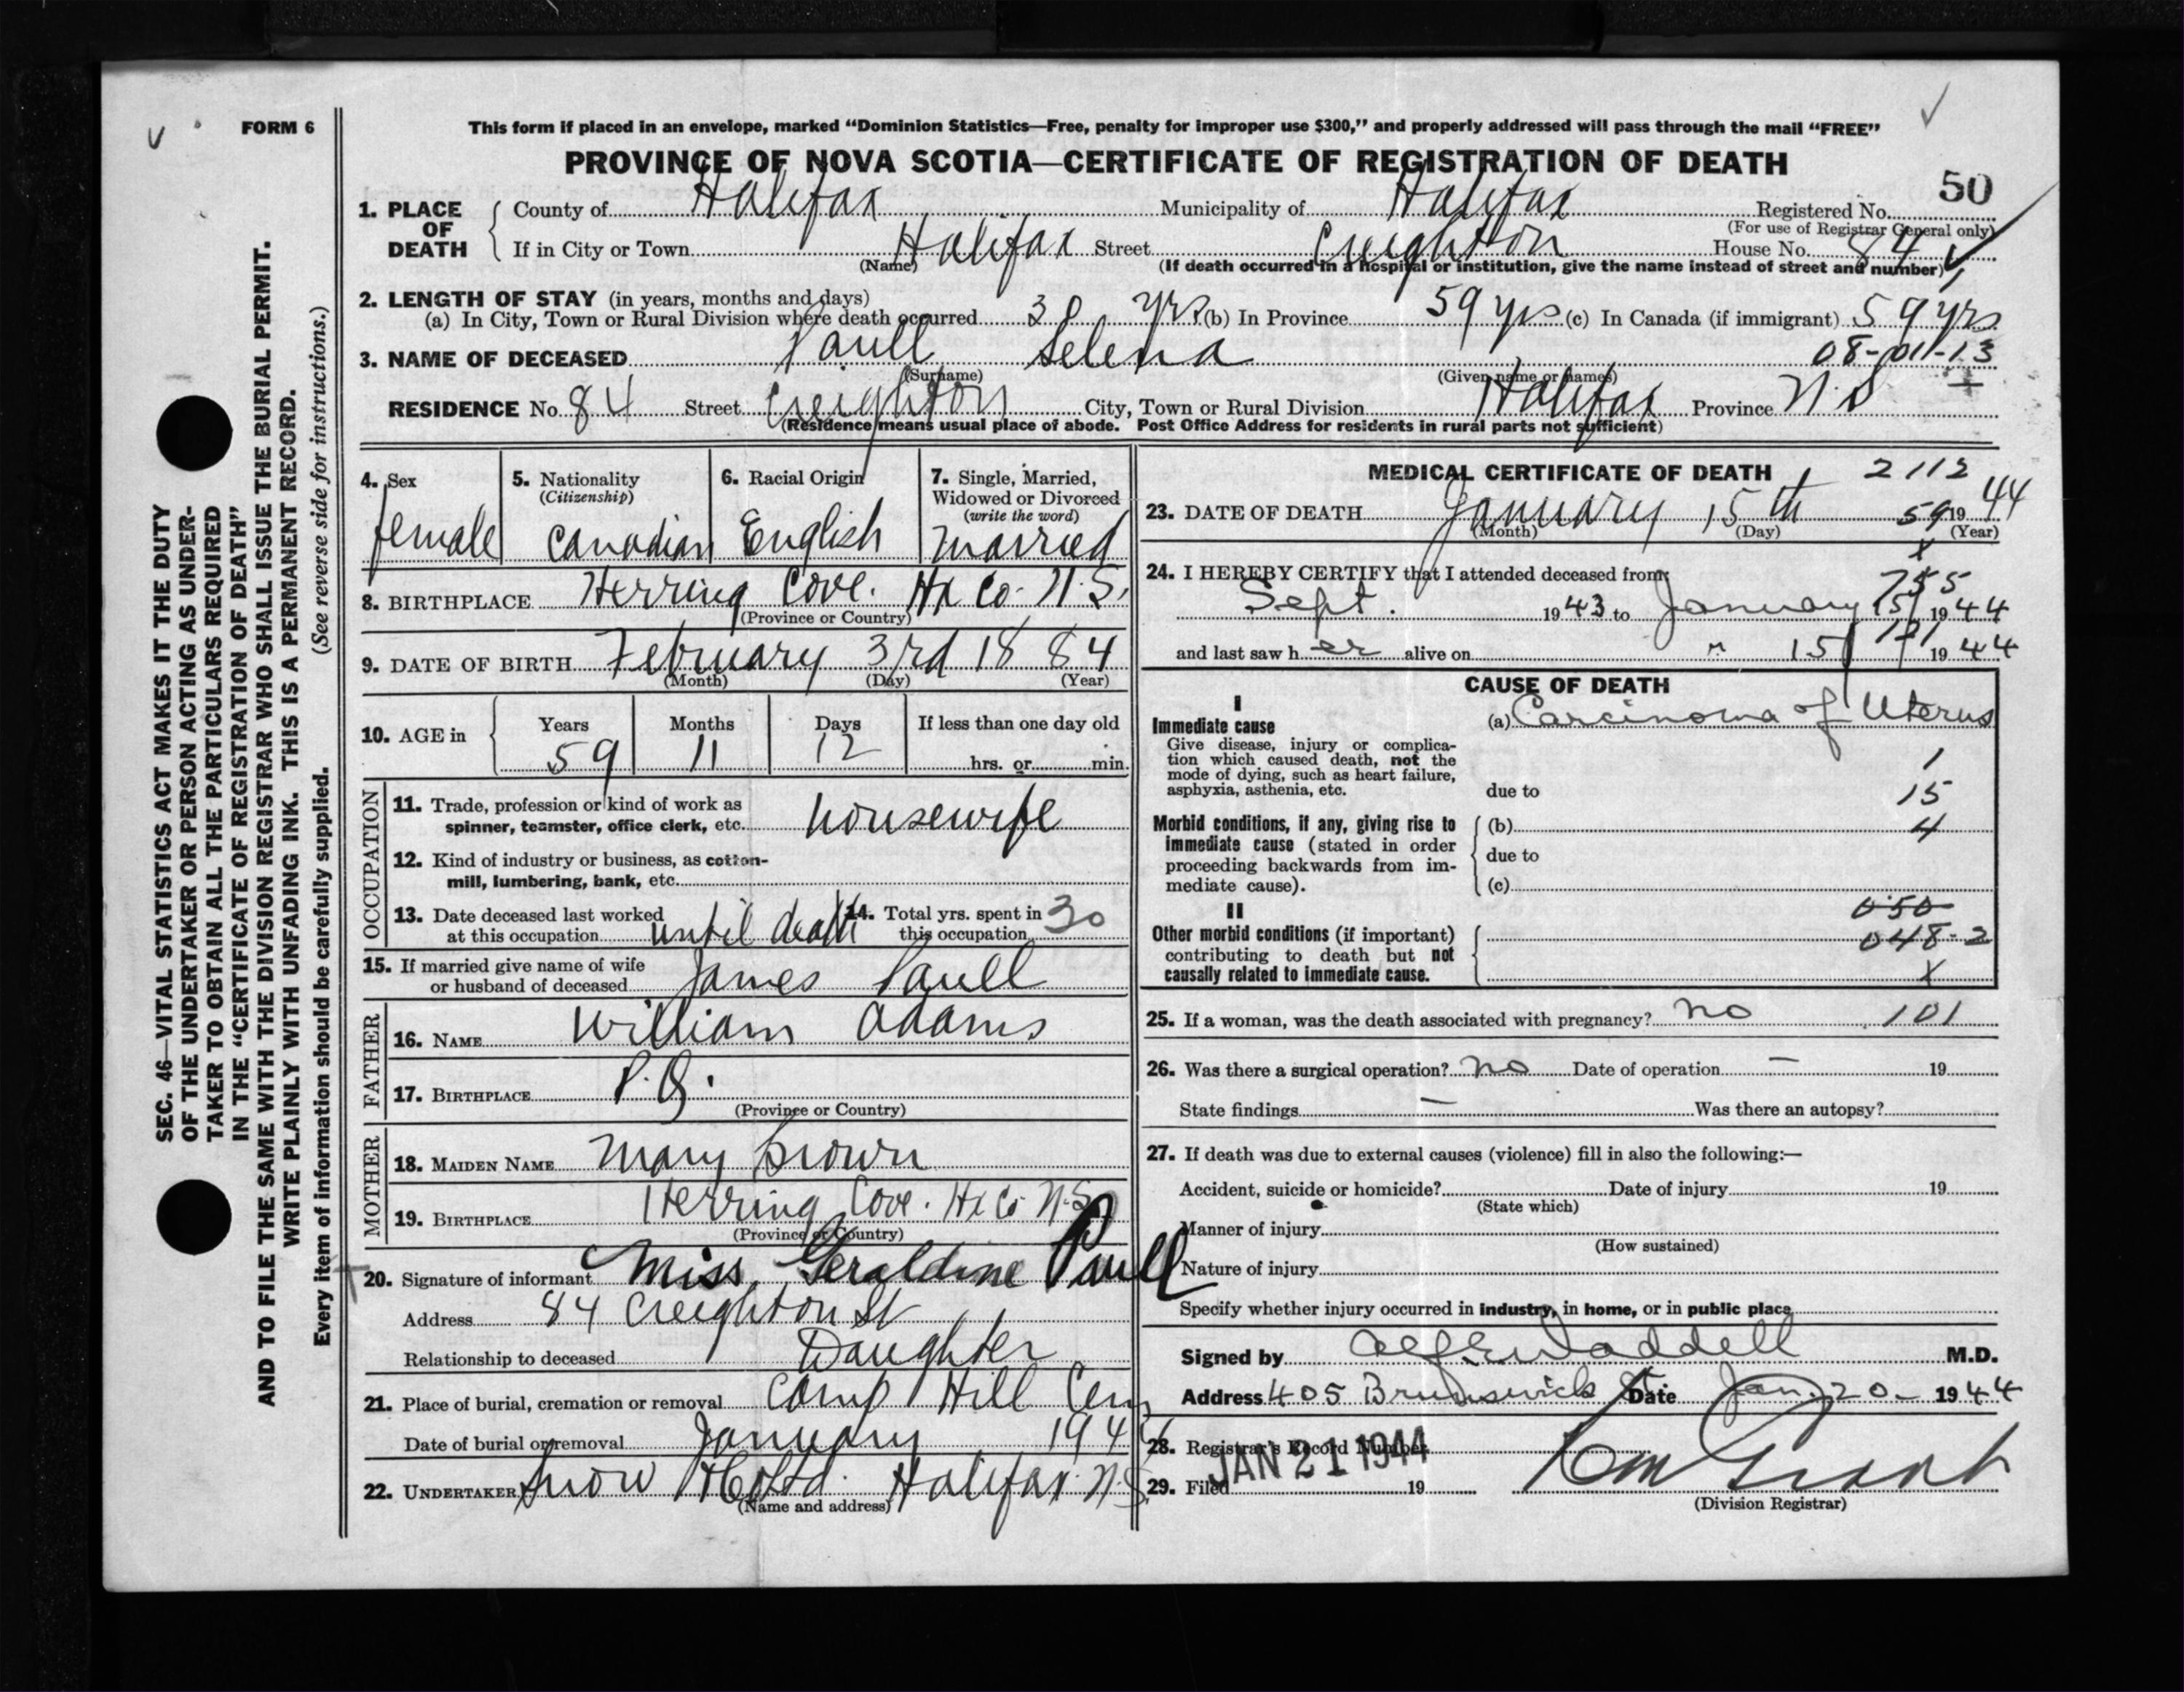 FORM 6
This form if placed in an envelope, marked “Dominion Statistics—Free, penalty for improper use $300,” and properly addressed will pass through the mail “FREE”
PROVINCE OF NOVA SCOTIA—CERTIFICATE OF REGISTRATION OF DEATH
50
1. PLACE OF DEATH { County of Halifax Municipality of Halifax Registered No.
(For use of Registrar General only)
If in City or Town Halifax Street Creighton House No. 84
(Name) (If death occurred in a hospital or institution, give the name instead of street and number)
2. LENGTH OF STAY (in years, months and days)
(a) In City, Town or Rural Division where death occurred 30 yrs (b) In Province 59 yrs (c) In Canada (if immigrant) 59 yrs
3. NAME OF DECEASED Paull Selena 08-011-13
(Surname) (Given name or names)
RESIDENCE No. 84 Street Creighton City, Town or Rural Division Halifax Province N.S
(Residence means usual place of abode. Post Office Address for residents in rural parts not sufficient)
4. Sex
female
5. Nationality
(Citizenship)
Canadian
6. Racial Origin
English
7. Single, Married,
Widowed or Divorced
(write the word)
married
8. BIRTHPLACE Herring Cove. Hx Co. N.S.
(Province or Country)
9. DATE OF BIRTH February 3rd 1884
(Month) (Day) (Year)
10. AGE in { Years Months Days If less than one day old
59 11 12 hrs. or min.
OCCUPATION
11. Trade, profession or kind of work as
spinner, teamster, office clerk, etc. housewife
12. Kind of industry or business, as cotton-
mill, lumbering, bank, etc.
13. Date deceased last worked
at this occupation until death
14. Total yrs. spent in
this occupation 30
15. If married give name of wife
or husband of deceased James Paull
FATHER
16. NAME William Adams
17. BIRTHPLACE P.Q.
(Province or Country)
MOTHER
18. MAIDEN NAME Mary Brown
19. BIRTHPLACE Herring Cove. Hx Co N.S
(Province or Country)
20. Signature of informant Miss Geraldine Paull
Address 84 Creighton St
Relationship to deceased Daughter
21. Place of burial, cremation or removal Camp Hill Cem
Date of burial or removal January 194
22. UNDERTAKER Snow & Co Ltd. Halifax N.S
(Name and address)
MEDICAL CERTIFICATE OF DEATH 2112
23. DATE OF DEATH January 15th 59 1944
(Month) (Day) (Year)
24. I HEREBY CERTIFY that I attended deceased from:
755
Sept. 1943 to January 15 1944
and last saw her alive on " 15 1944
CAUSE OF DEATH
I
Immediate cause
Give disease, injury or complica-
tion which caused death, not the
mode of dying, such as heart failure,
asphyxia, asthenia, etc.
(a) Carcinoma of Uterus
1
due to 15
Morbid conditions, if any, giving rise to
immediate cause (stated in order
proceeding backwards from im-
mediate cause).
(b) 4
due to
(c)
II
Other morbid conditions (if important)
contributing to death but not
causally related to immediate cause.
050
048-2
X
25. If a woman, was the death associated with pregnancy? no 101
26. Was there a surgical operation? no Date of operation — 19
State findings — Was there an autopsy?
27. If death was due to external causes (violence) fill in also the following:—
Accident, suicide or homicide? Date of injury 19
(State which)
Manner of injury
(How sustained)
Nature of injury
Specify whether injury occurred in industry, in home, or in public place
Signed by Waddell M.D.
Address 405 Brunswick St. Date Jan. 20 1944
28. Registrar's Record Number
JAN 21 1944
29. Filed 19
(Division Registrar)
SEC. 46—VITAL STATISTICS ACT MAKES IT THE DUTY
OF THE UNDERTAKER OR PERSON ACTING AS UNDER-
TAKER TO OBTAIN ALL THE PARTICULARS REQUIRED
IN THE “CERTIFICATE OF REGISTRATION OF DEATH”
AND TO FILE THE SAME WITH THE DIVISION REGISTRAR WHO SHALL ISSUE THE BURIAL PERMIT.
WRITE PLAINLY WITH UNFADING INK. THIS IS A PERMANENT RECORD.
Every item of information should be carefully supplied. (See reverse side for instructions.)